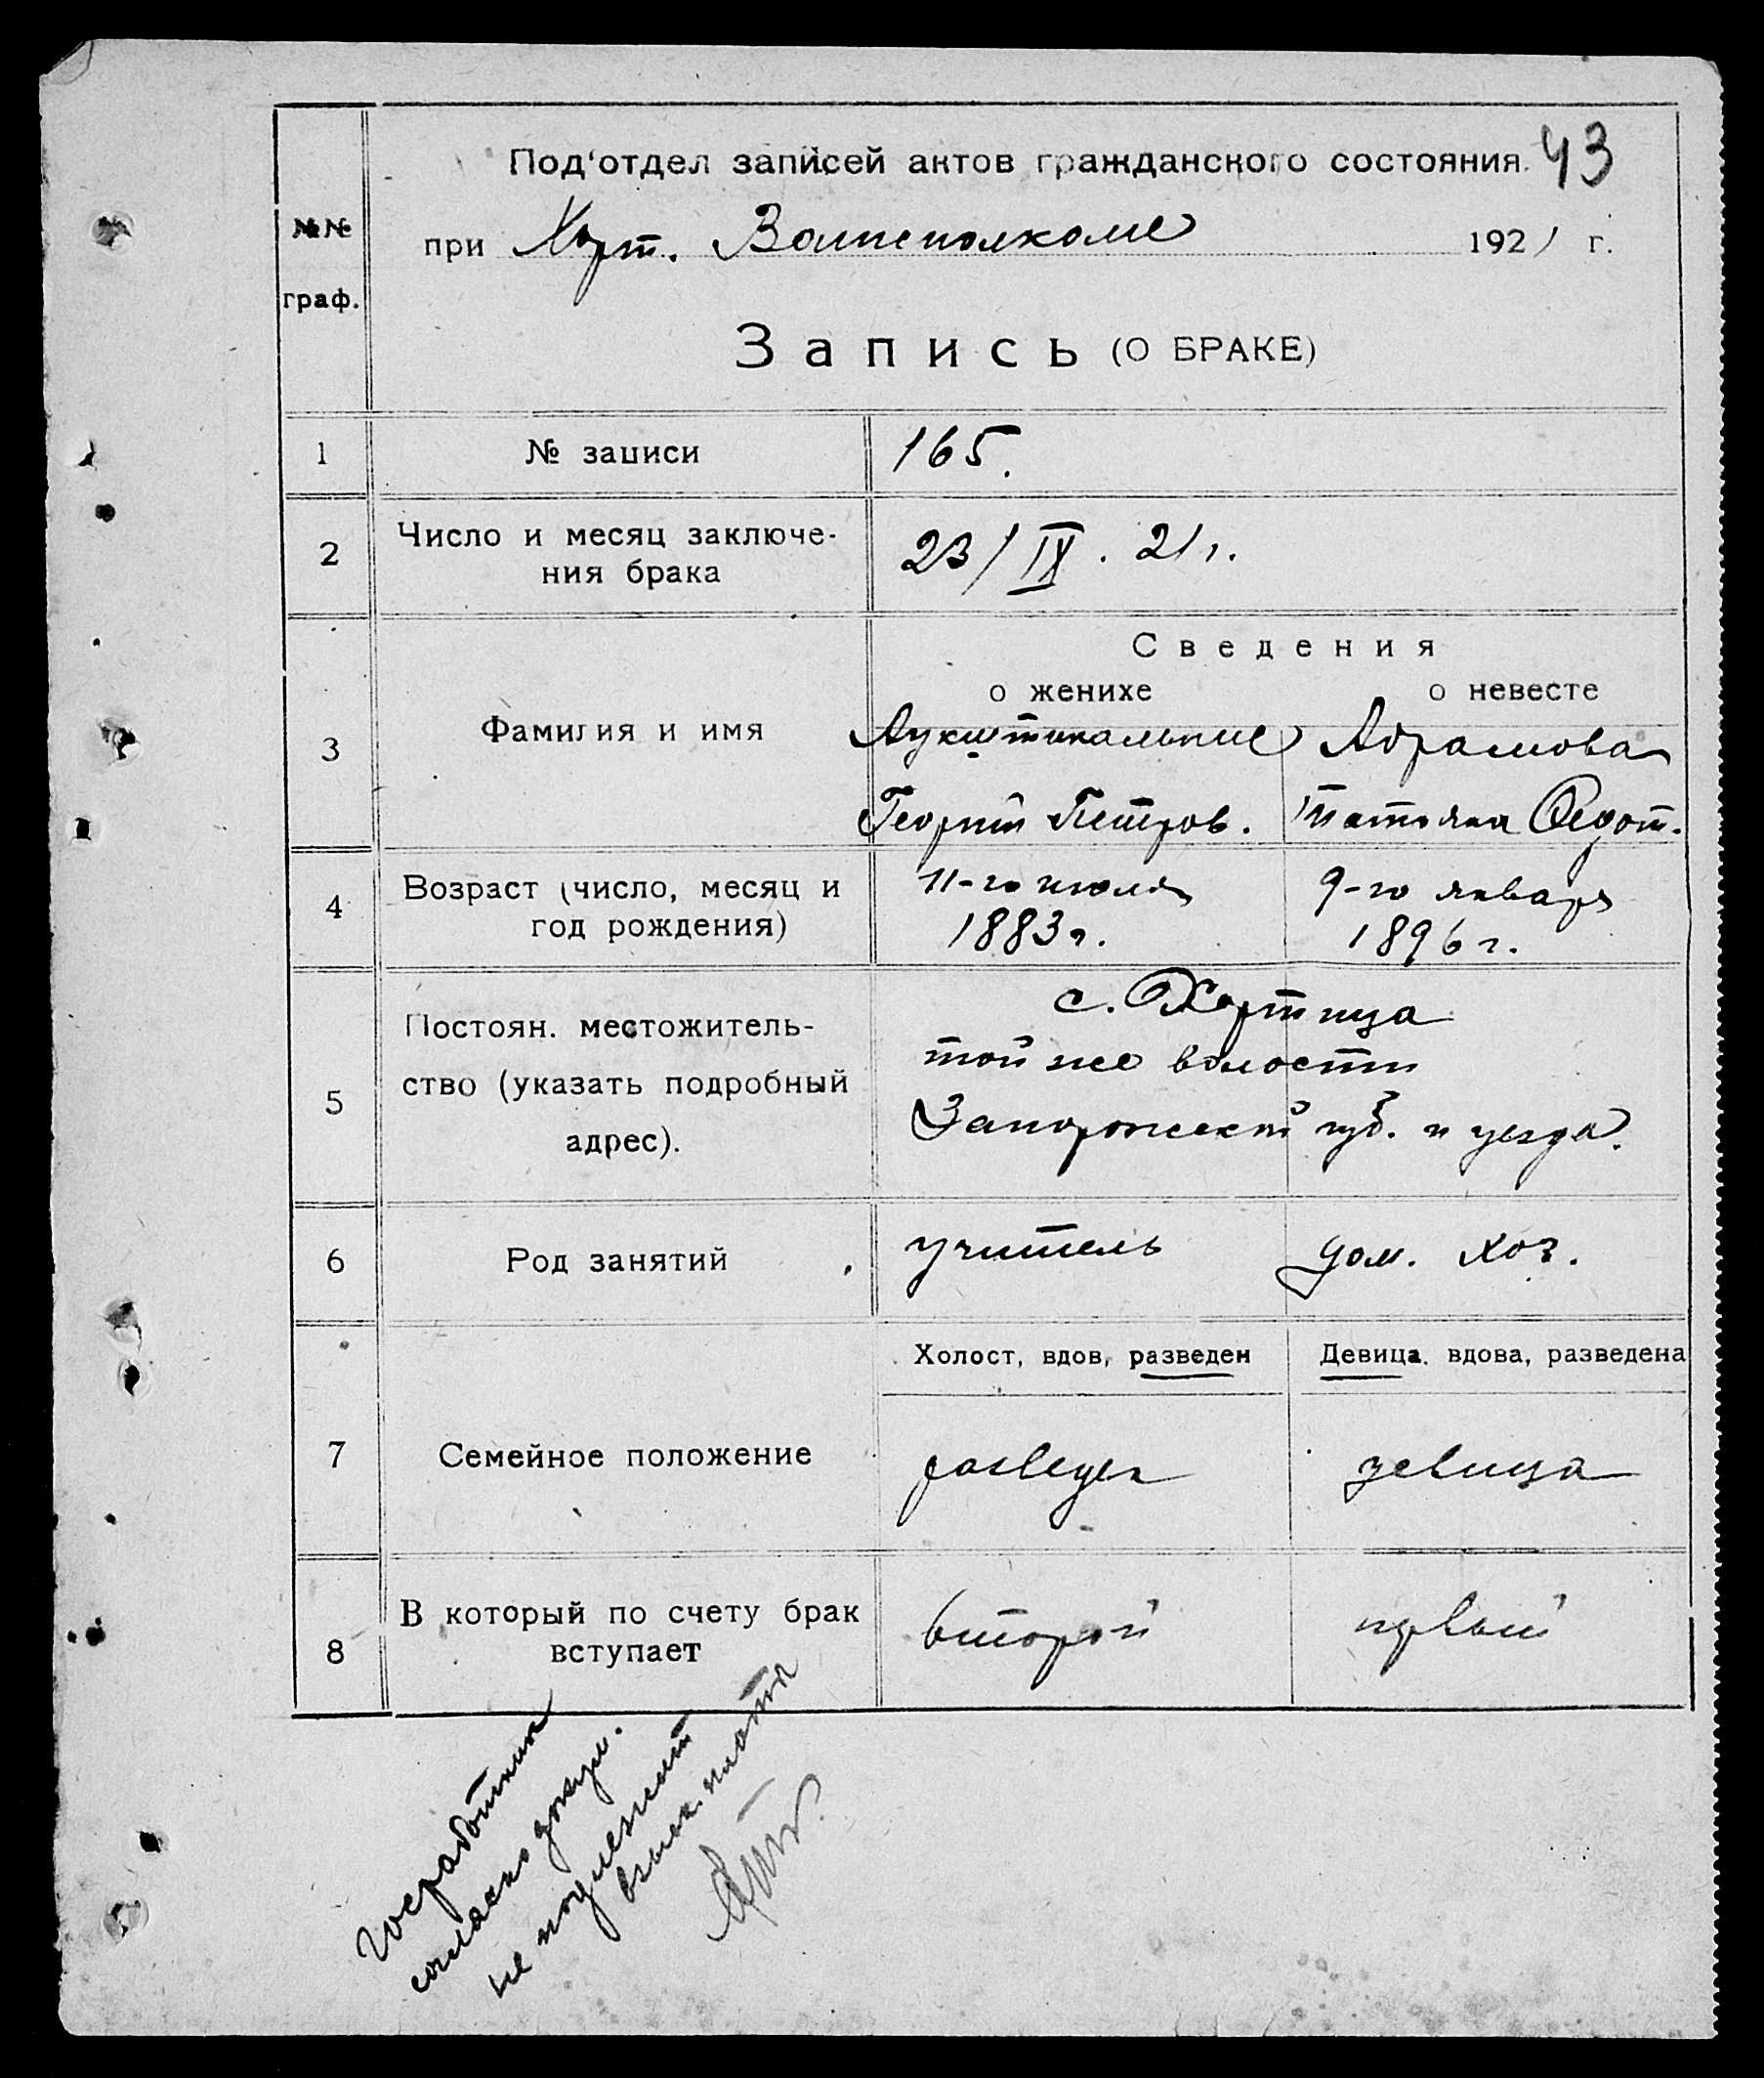 Под'отдел записей актов гражданского состояния. 43
№№ граф.
при Хорт. Волисполкоме 1921 г.
Запись (О БРАКЕ)
1 № записи 165.
2 Число и месяц заключе-
ния брака 23/IX. 21 г.
Сведения
о женихе о невесте
3 Фамилия и имя Абрамова
Георгий Петров. Татьяна Федот.
4 Возраст (число, месяц и 11-го июля 9-го января
год рождения) 1883 г. 1896 г.
с. Хортица
5 Постоян. местожитель- той же волости
ство (указать подробный Запорожской губ. и уезда.
адрес).
6 Род занятий учитель дом. хоз.
Холост, вдов, разведен Девица, вдова, разведена
7 Семейное положение разведен девица
8 В который по счету брак второй первый
вступает
Госработник
согласно докум.
не подлежит
взыск. платы